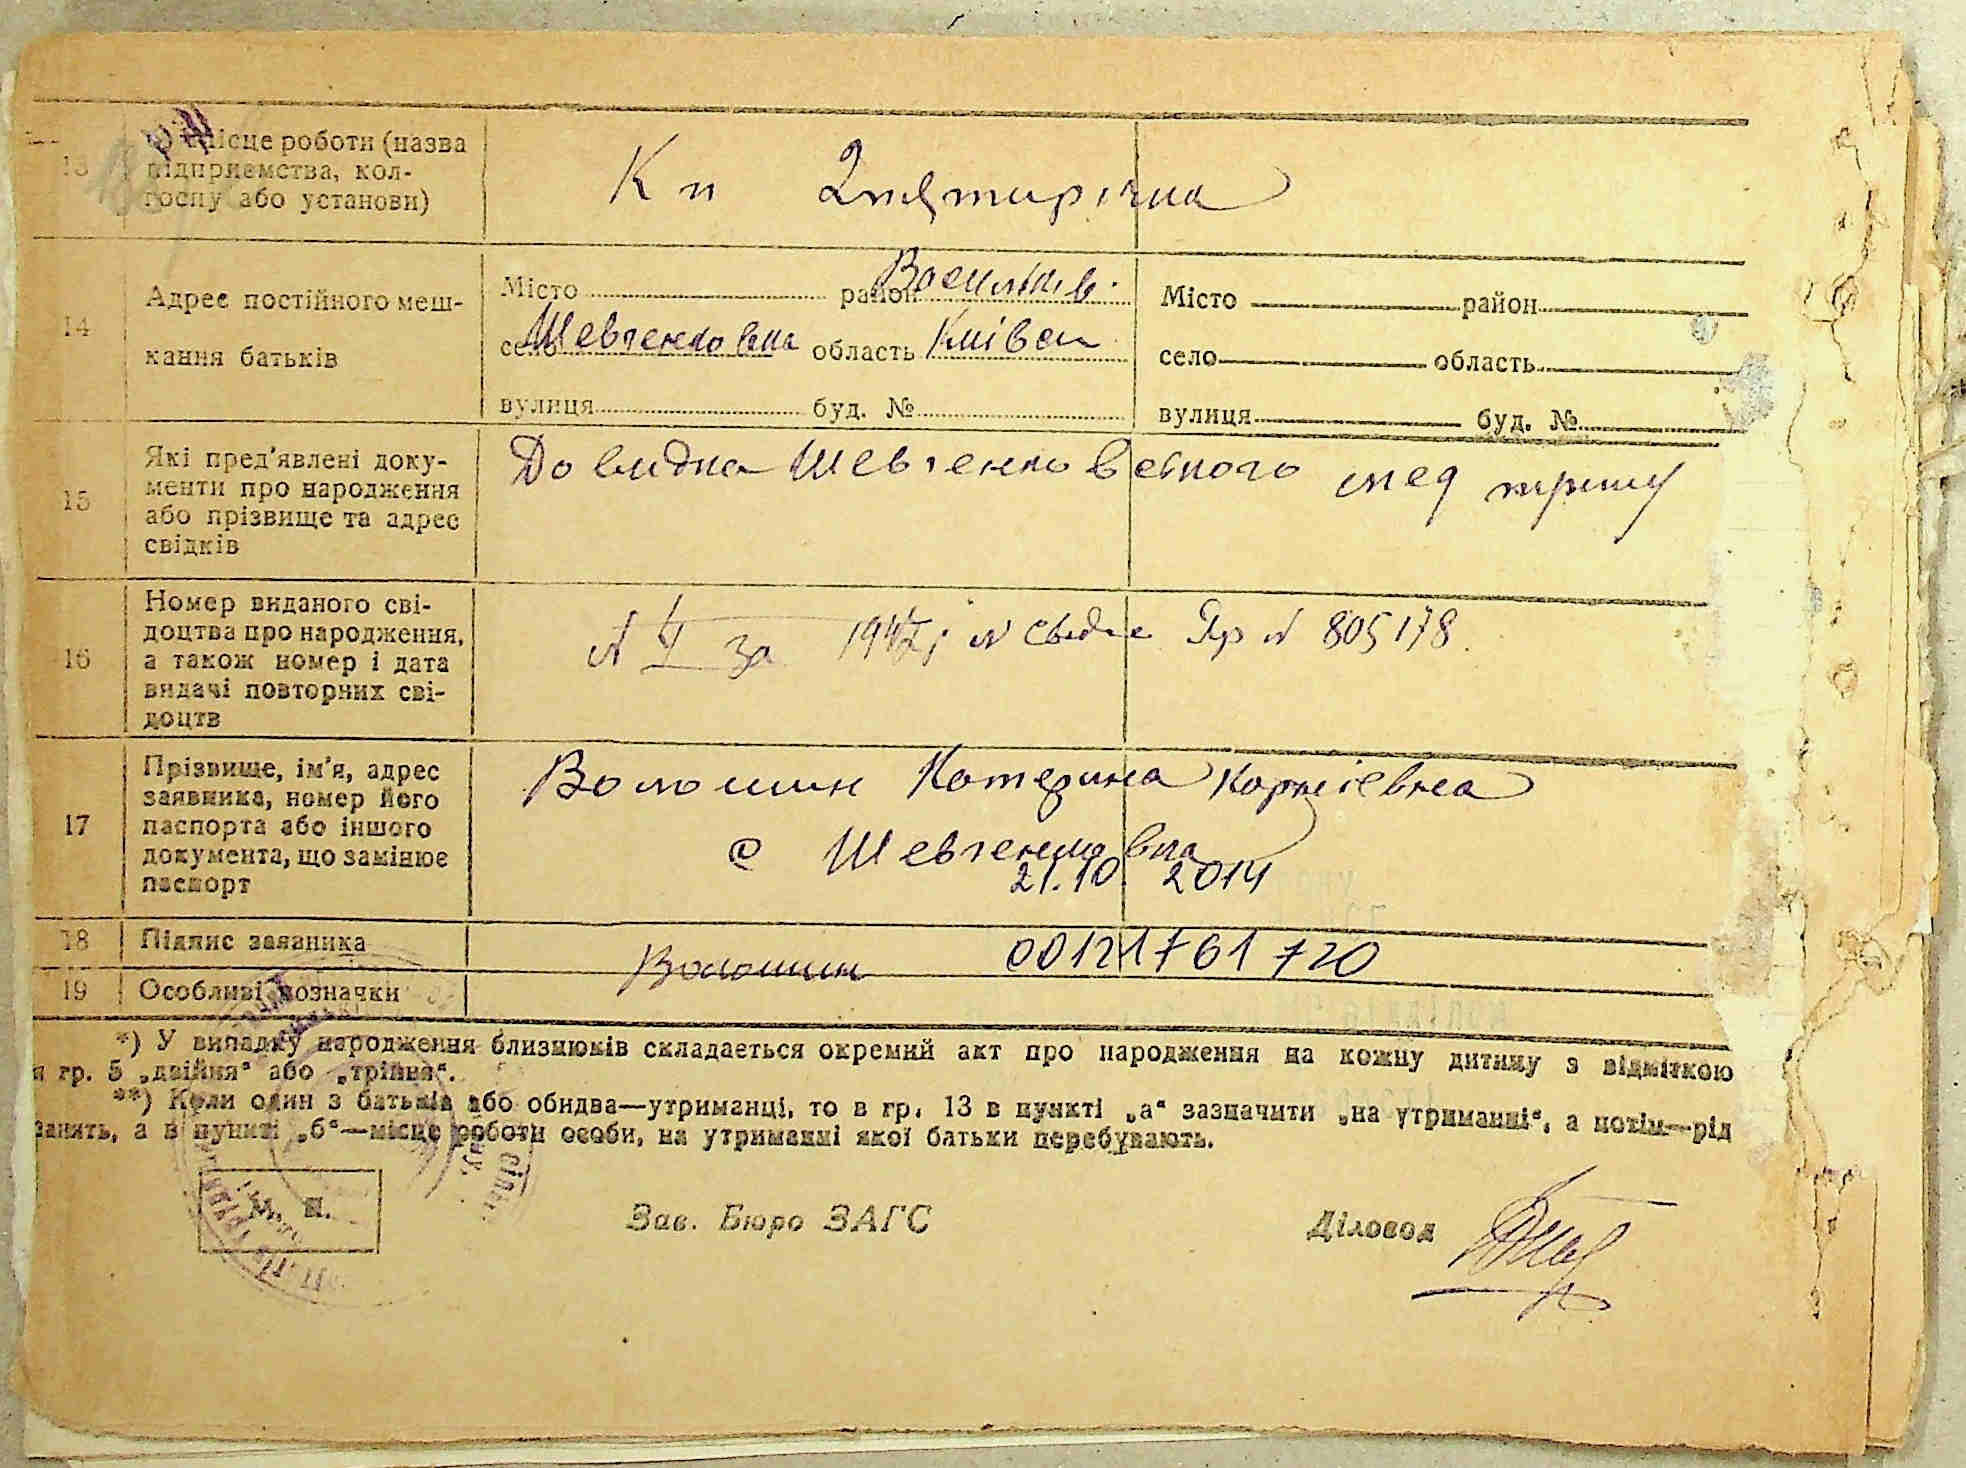 13
місце роботи (назва
підприємства, кол-
госпу або установи)
Кп 2 п'ятирічка
14
Адреє постійного меш-
кання батьків
Місто район Васильків.
село Шевченковка область Київськ
вулиця буд. №
Місто район
село область
вулиця буд. №
15
Які пред'явлені доку-
менти про народження
або прізвище та адрес
свідків
Довидка Шевченковского мед
16
Номер виданого сві-
доцтва про народження,
а також номер і дата
видачі повторних сві-
доцтв
за 1947 № 805178
17
Прізвище, ім'я, адрес
заявника, номер його
паспорта або іншого
документа, що замінює
паспорт
Волошин Катерина Корніевна
с Шевченковка
21.10 2014
18
Підпис заявника
Волошин
00121761720
19
Особливі позначки
*) У випадку народження близнюків складається окремий акт про народження на кожну дитину з відміткою
в гр. 5 „двійня“ або „трійня“.
**) Коли один з батьків або обидва—утриманці, то в гр. 13 в пункті „а“ зазначити „на утриманні“, а потім—рід
занять, а в пункті „б“—місце роботи особи, на утриманні якої батьки перебувають.
М. П.
Зав. Бюро ЗАГС
Діловод